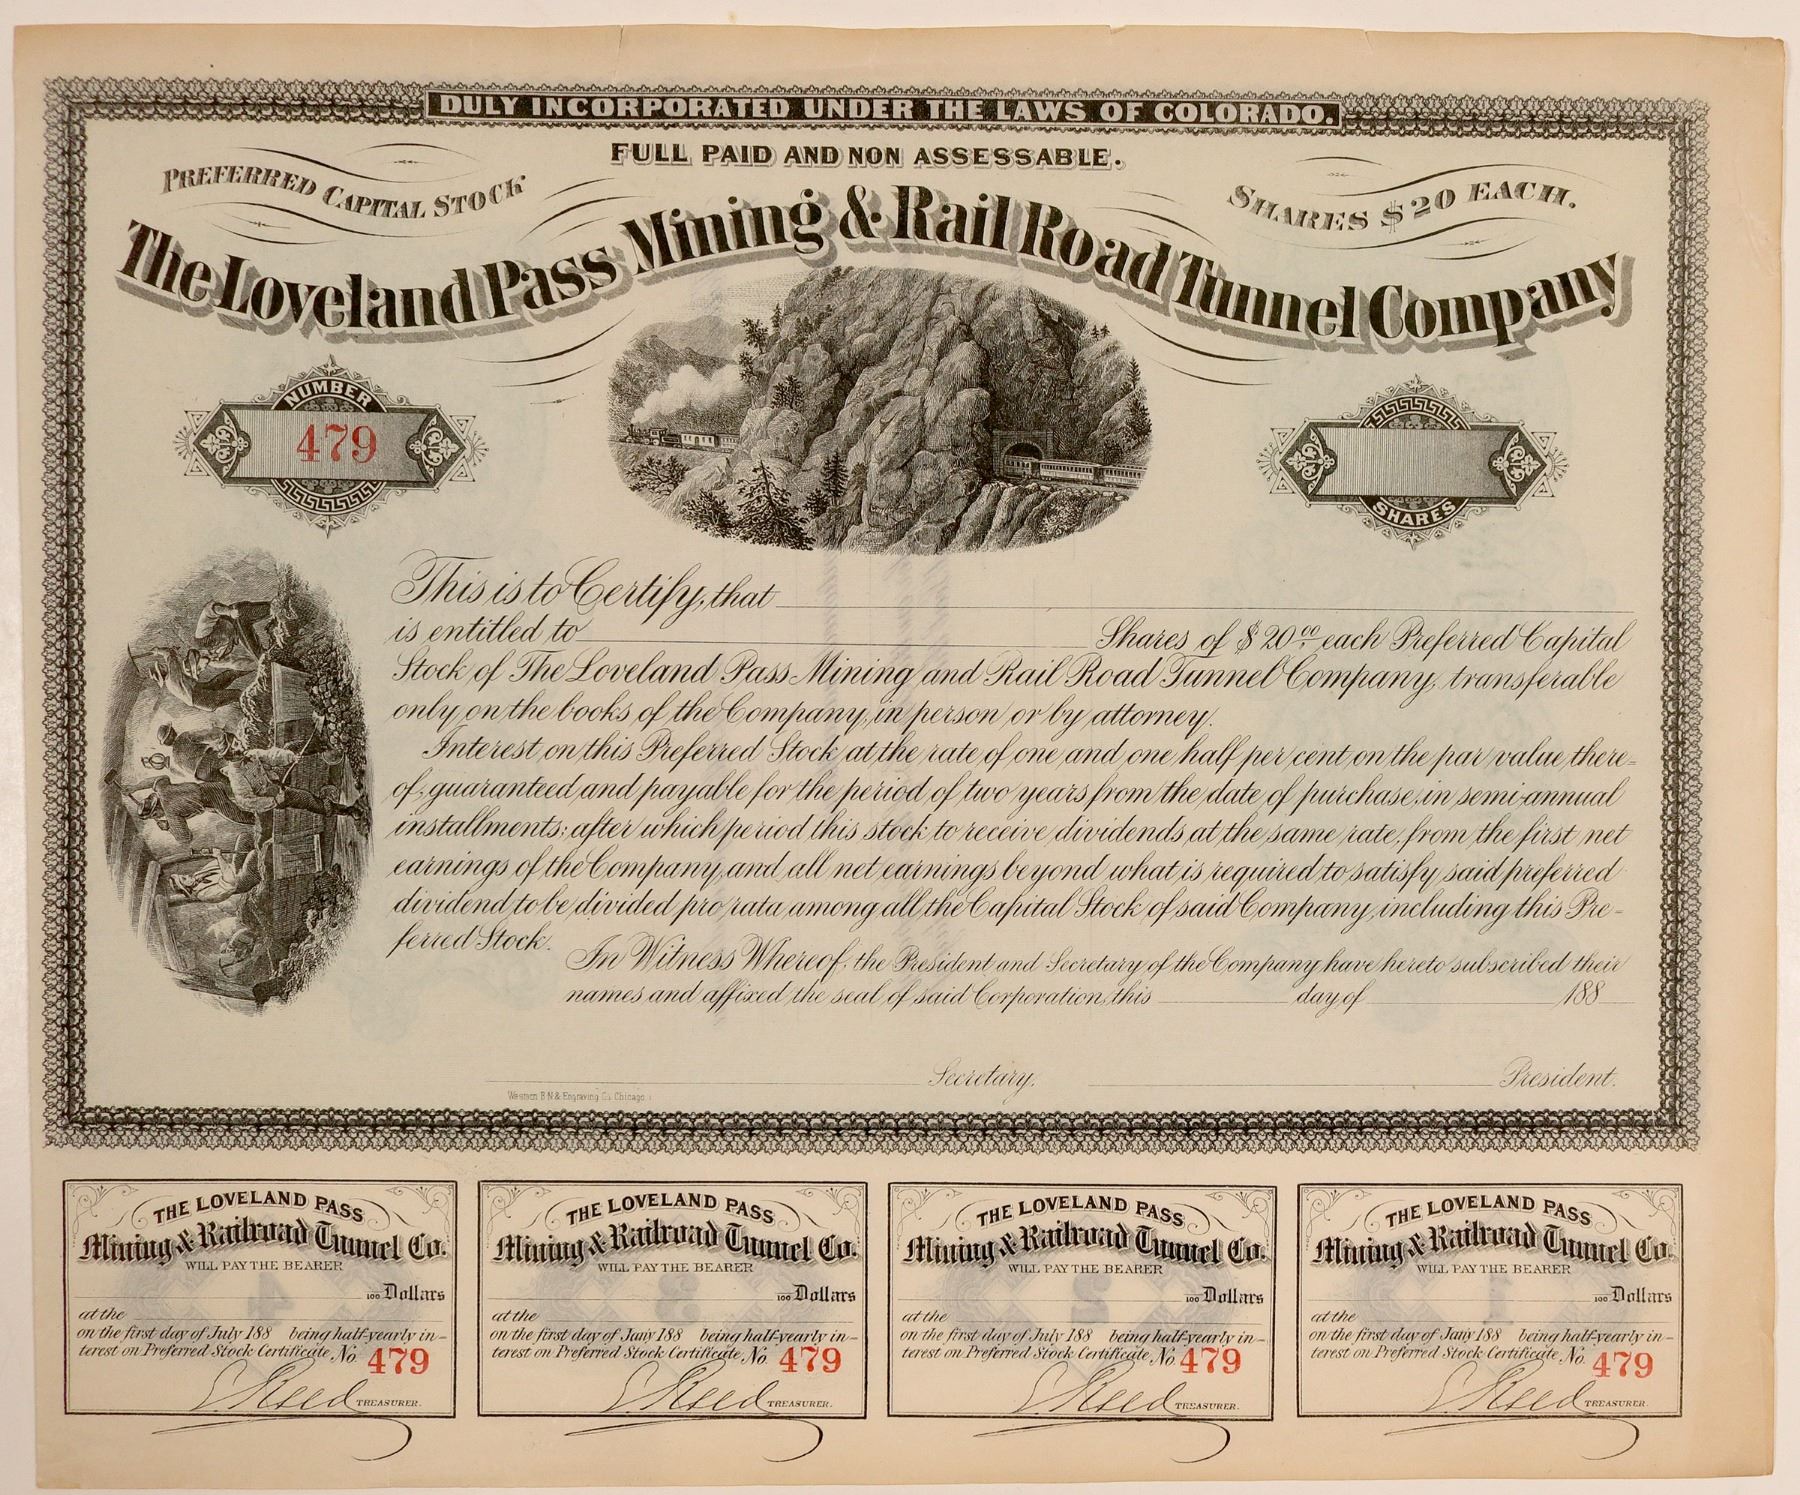 DULY INCORPORATED UNDER THE LAWS OF COLORADO.
FULL PAID AND NON ASSESSABLE.
PREFERRED CAPITAL STOCK
SHARES $20 EACH.
The Loveland Pass Mining & Rail Road Tunnel Company
NUMBER
479
SHARES
This is to Certify, that
is entitled to Shares of $20.00 each Preferred Capital
Stock of The Loveland Pass Mining and Rail Road Tunnel Company, transferable
only on the books of the Company, in person or by attorney.
Interest on this Preferred Stock at the rate of one and one half per cent on the par value there=
of, guaranteed and payable for the period of two years from the date of purchase, in semi-annual
installments; after which period this stock to receive dividends at the same rate, from the first net
earnings of the Company, and all net earnings beyond what is required to satisfy said preferred
dividend to be divided pro rata among all the Capital Stock of said Company, including this Pre-
ferred Stock.
In Witness Whereof, the President and Secretary of the Company have hereto subscribed their
names and affixed the seal of said Corporation, this day of 188
Secretary. President.
Western B.N. & Engraving Co. Chicago
THE LOVELAND PASS
Mining & Railroad Tunnel Co.
WILL PAY THE BEARER
100 Dollars
at the
on the first day of July 188 being half-yearly in-
terest on Preferred Stock Certificate, No. 479
Reed TREASURER.
THE LOVELAND PASS
Mining & Railroad Tunnel Co.
WILL PAY THE BEARER
100 Dollars
at the
on the first day of Jany 188 being half-yearly in-
terest on Preferred Stock Certificate, No. 479
Reed TREASURER.
THE LOVELAND PASS
Mining & Railroad Tunnel Co.
WILL PAY THE BEARER
100 Dollars
at the
on the first day of July 188 being half-yearly in-
terest on Preferred Stock Certificate, No. 479
Reed TREASURER.
THE LOVELAND PASS
Mining & Railroad Tunnel Co.
WILL PAY THE BEARER
100 Dollars
at the
on the first day of Jany 188 being half-yearly in-
terest on Preferred Stock Certificate, No. 479
Reed TREASURER.